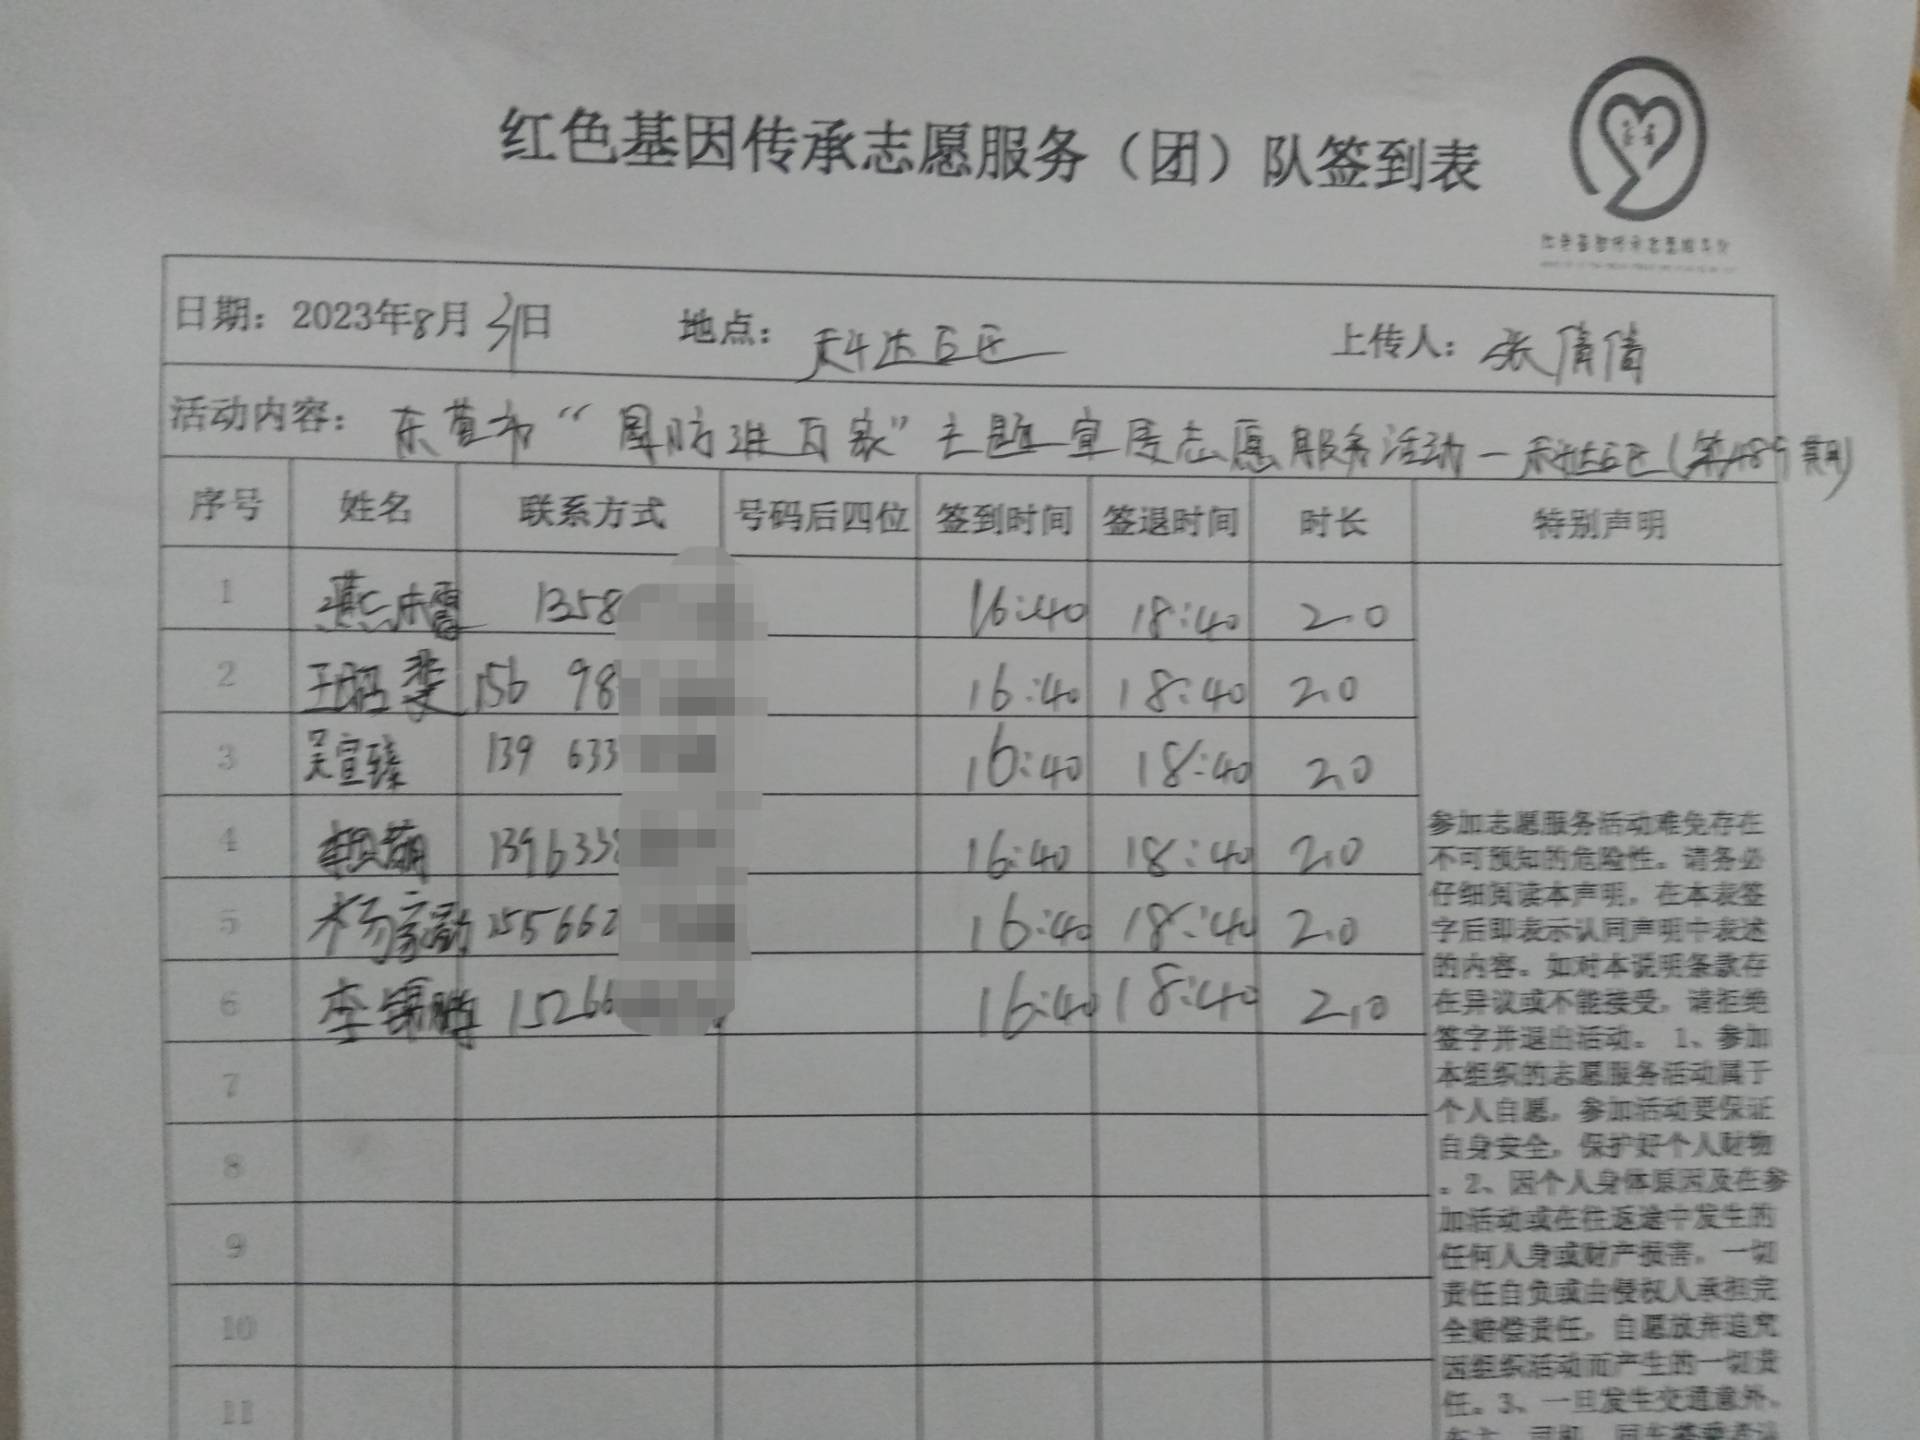 红色基因传承志愿服务（团）队签到表
红色基因传承志愿服务队
日期：2023年8月31日 地点：科达社区 上传人：张倩倩
活动内容：东营市“国防进万家”主题宣传志愿服务活动—科达社区（第489期）
序号 姓名 联系方式 号码后四位 签到时间 签退时间 时长 特别声明
1 1358 16:40 18:40 2.0
2 王 斐 156 98 16:40 18:40 2.0
3 吴宣臻 139 633 16:40 18:40 2.0
4 139633 16:40 18:40 2.0
5 杨家 155662 16:40 18:40 2.0
6 李锦鹏 15266 16:40 18:40 2.0
7
8
9
10
11
参加志愿服务活动难免存在
不可预知的危险性。请务必
仔细阅读本声明，在本表签
字后即表示认同声明中表述
的内容。如对本说明条款存
在异议或不能接受，请拒绝
签字并退出活动。 1、参加
本组织的志愿服务活动属于
个人自愿，参加活动要保证
自身安全，保护好个人财物
。2、因个人身体原因及在参
加活动或在往返途中发生的
任何人身或财产损害，一切
责任自负或由侵权人承担完
全赔偿责任，自愿放弃追究
因组织活动而产生的一切责
任。3、一旦发生交通意外，